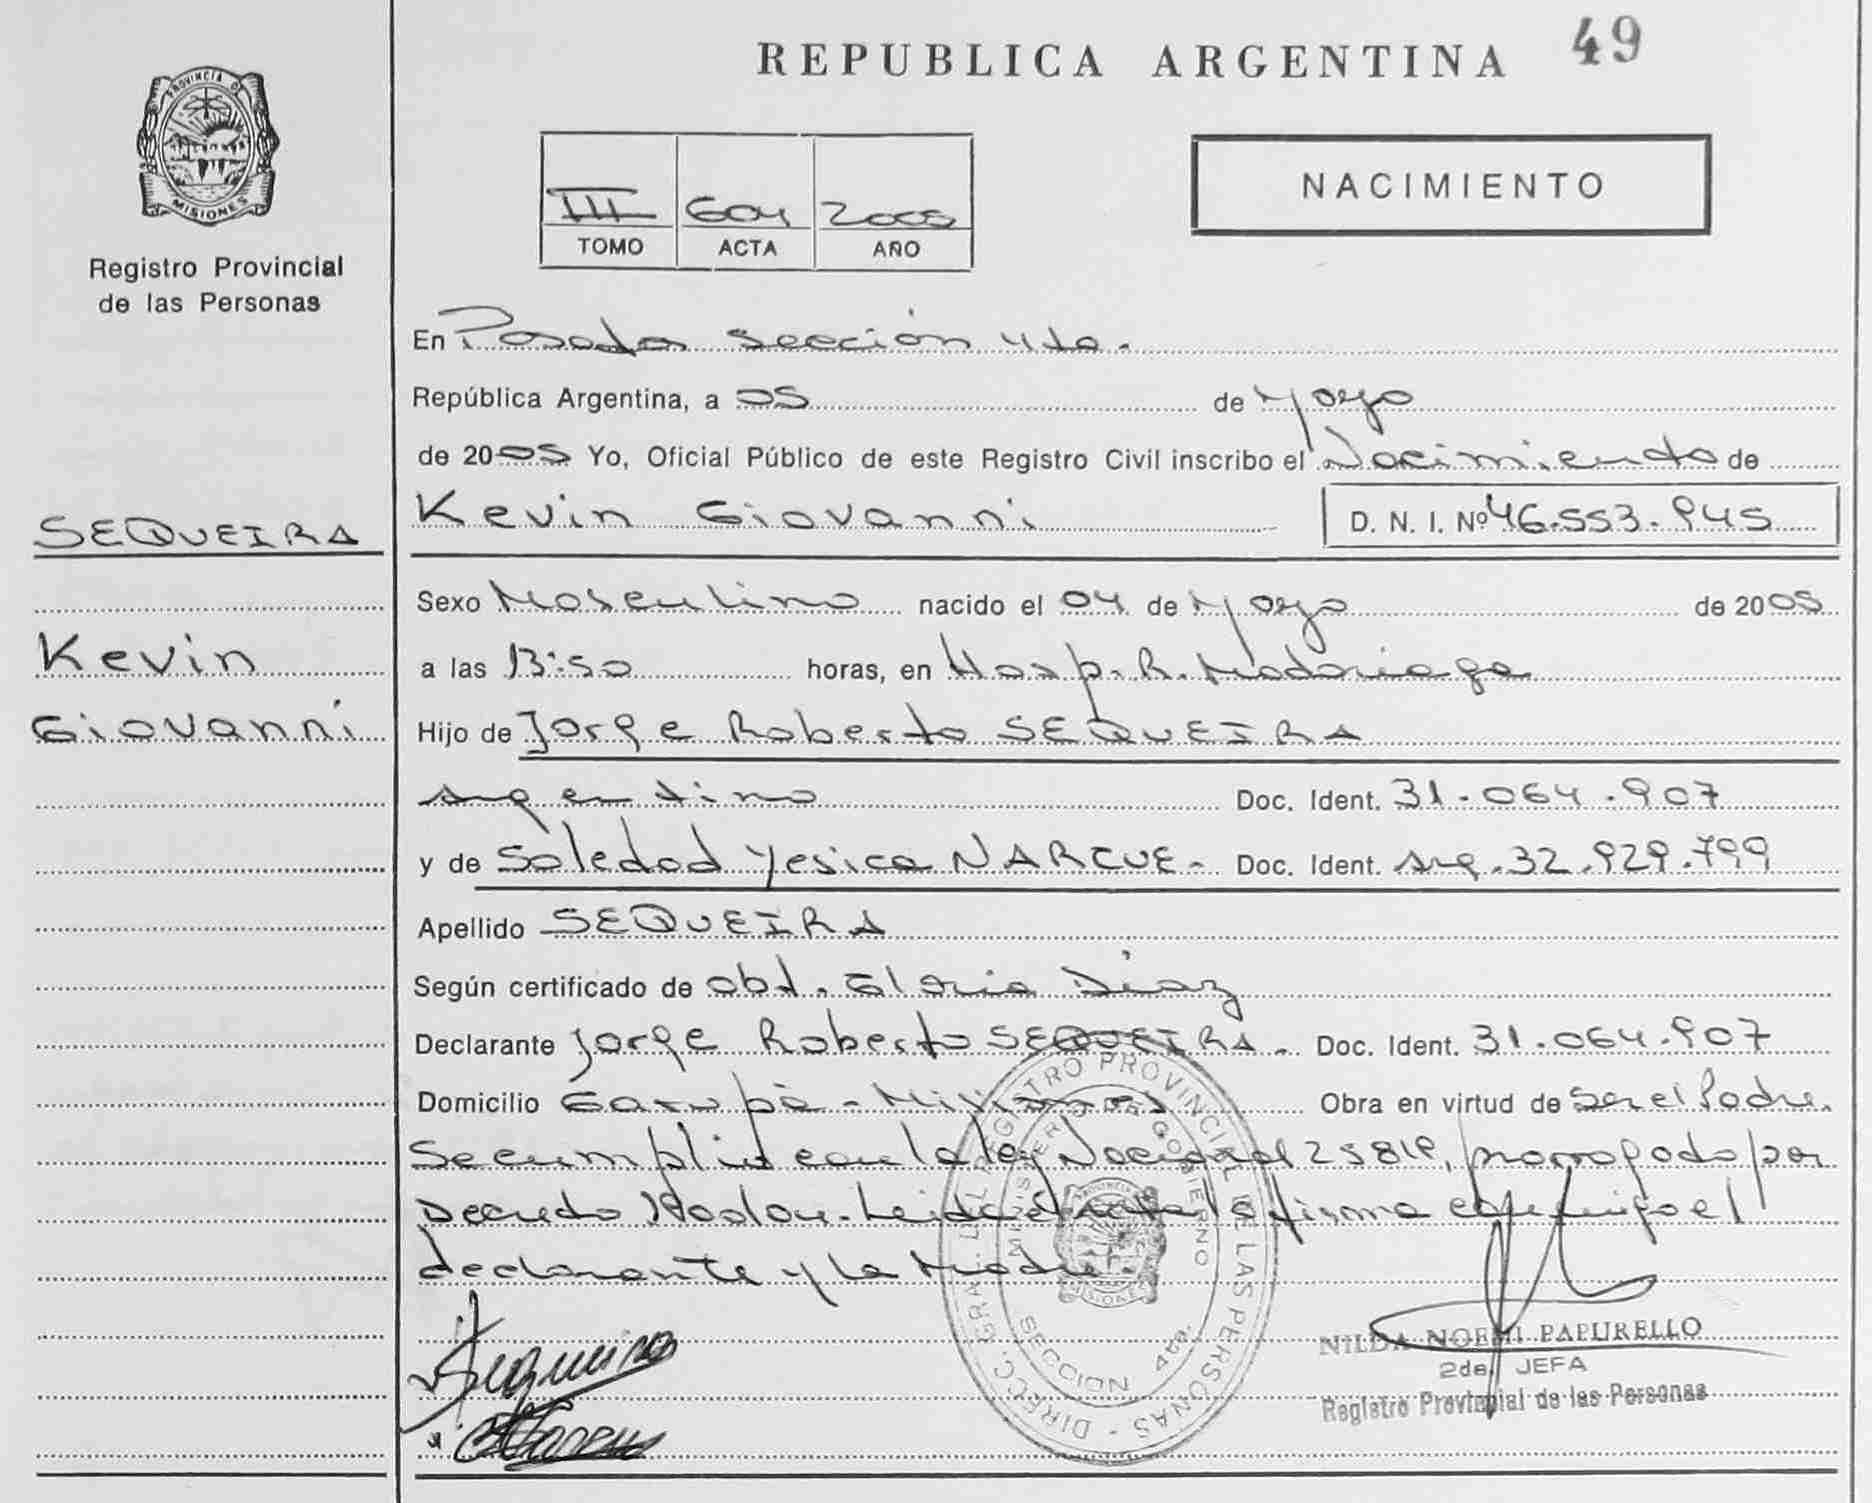 REPUBLICA ARGENTINA 49
PROVINCIA DE
MISIONES
Registro Provincial
de las Personas
III 604 2005
TOMO ACTA AÑO
NACIMIENTO
En Posadas Sección 4ta.
República Argentina, a 05 de Mayo
de 2005 Yo, Oficial Público de este Registro Civil inscribo el Nacimiento de
SEQUEIRA
Kevin Giovanni D. N. I. Nº 46.553.945
Sexo Masculino nacido el 04 de Mayo de 2005
Kevin
a las 13:50 horas, en Hosp. R. Madariaga
Giovanni
Hijo de Jorge Roberto SEQUEIRA
Argentino Doc. Ident. 31.064.907
y de Soledad Yesica NARCUE- Doc. Ident. Arg. 32.929.799
Apellido SEQUEIRA
Según certificado de obt. Gloria Díaz
Declarante Jorge Roberto SEQUEIRA- Doc. Ident. 31.064.907
Domicilio Garupá - Misiones Obra en virtud de Ser el Padre.
Se cumplió con la ley Nacional 25819, prorrogado por
Decreto Leída el acta la firma conmigo el
declarante y la Madre.
DIRECC. GRAL. DEL REGISTRO PROVINCIAL DE LAS PERSONAS
MINISTERIO DE GOBIERNO
SECCION 4ta.
MISIONES
Sequeira
NILDA NOEMI PAPURELLO
2da. JEFA
Registro Provincial de las Personas